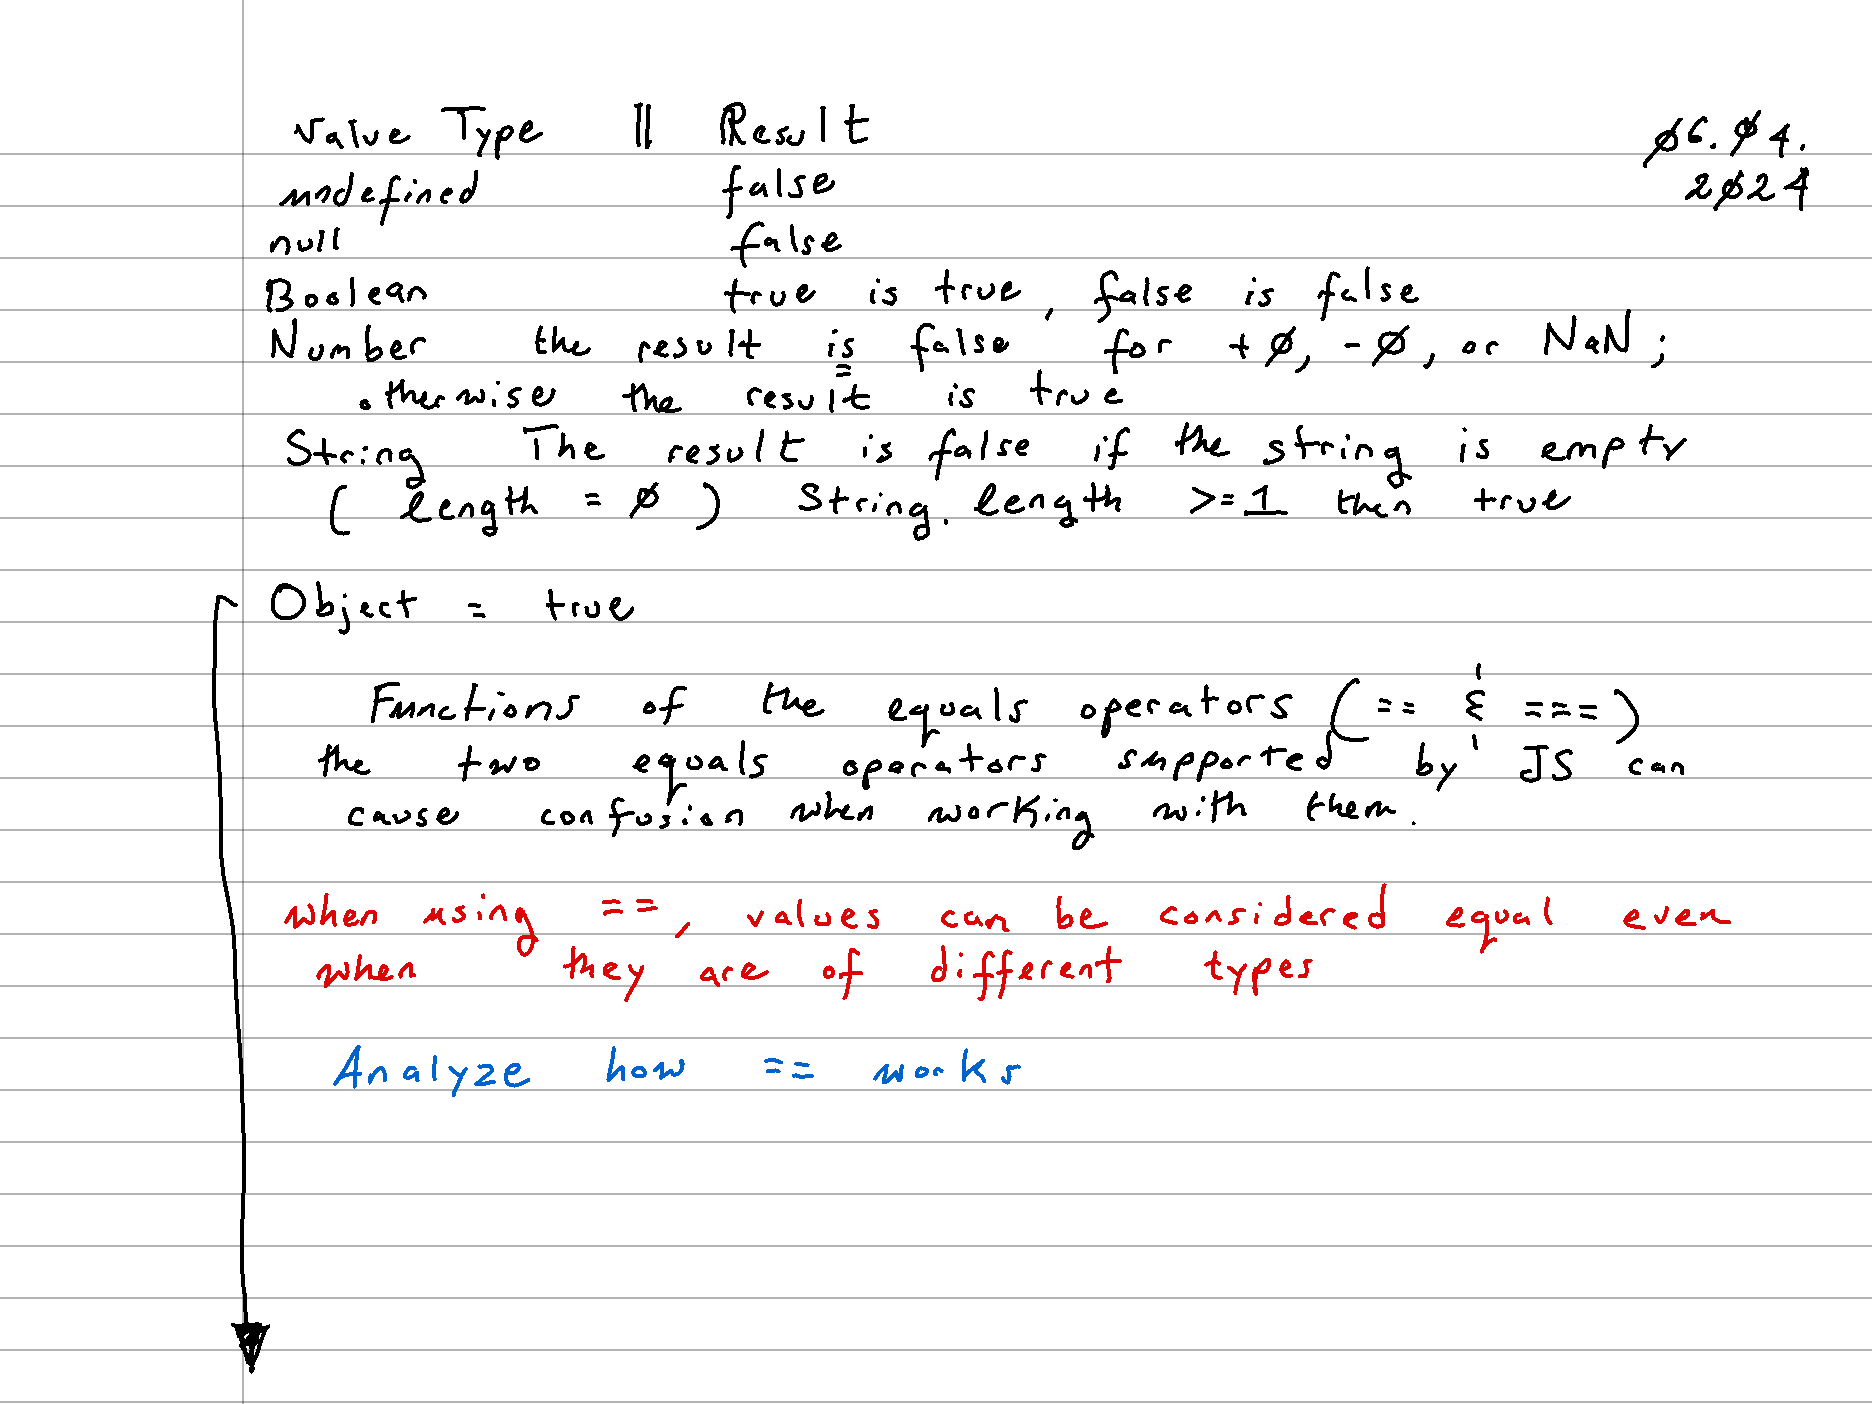 Value Type || Result
Ø6.Ø4.
2Ø24
undefined false
null false
Boolean true is true, false is false
Number the result is false for +Ø, -Ø, or NaN;
otherwise the result is true
String The result is false if the string is empty
( length = Ø ) String. length >=1 then true
Object = true
Functions of the equals operators (== & ===)
the two equals operators supported by JS can
cause confusion when working with them.
when using ==, values can be considered equal even
when they are of different types
Analyze how == works